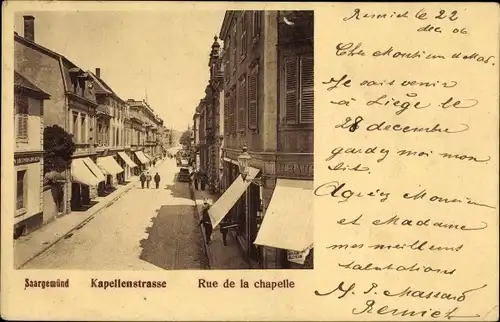 Remich le 22
dec 06
Cher Monsieur et Mad.
Je vais venir
à Liège le
28 decembre
gardez moi mon
lit.
Agréez Monsieur
et Madame
mes meilleurs
salutations
Massard
Remich
Saargemünd Kapellenstrasse Rue de la chapelle